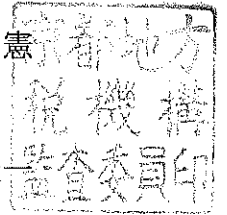 憲
京都地方
税機構
監査委員印